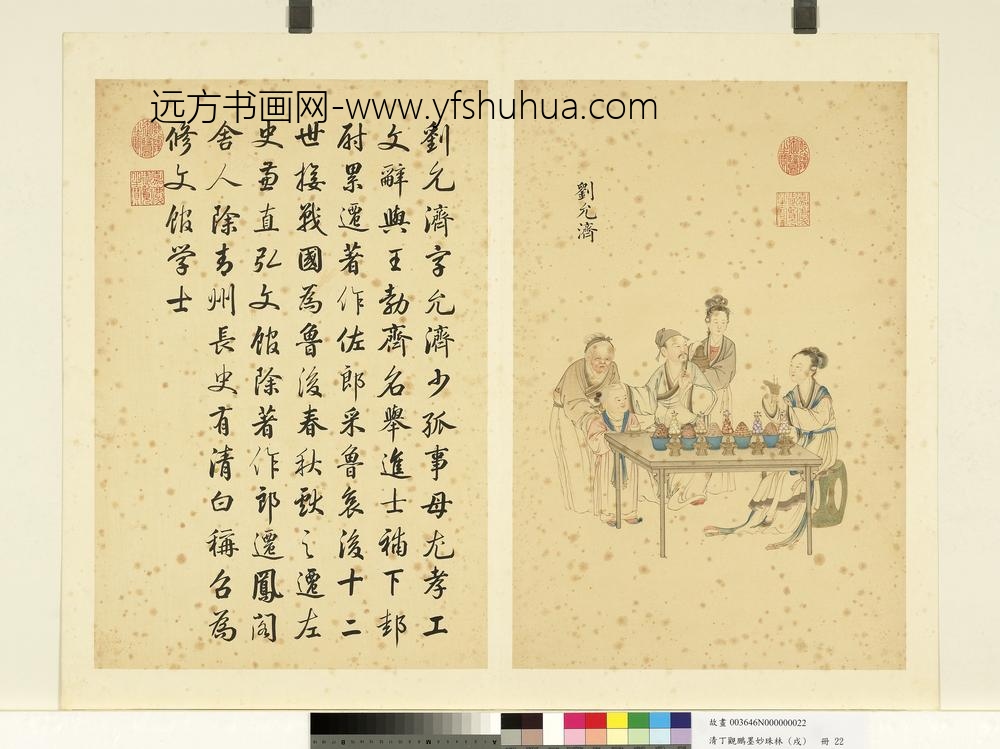 远方书画网-www.yfshuhua.com
劉允濟
劉允濟字允濟少孤事母尤孝工
文辭與王勃齊名舉進士補下邽
尉累遷著作佐郎采魯哀後十二
世接戰國為魯後春秋獻之遷左
史兼直弘文館除著作郎遷鳳閣
舍人除青州長史有清白稱召為
修文館学士
故畫 003646N000000022
清丁觀鵬墨妙珠林（戌） 冊 22